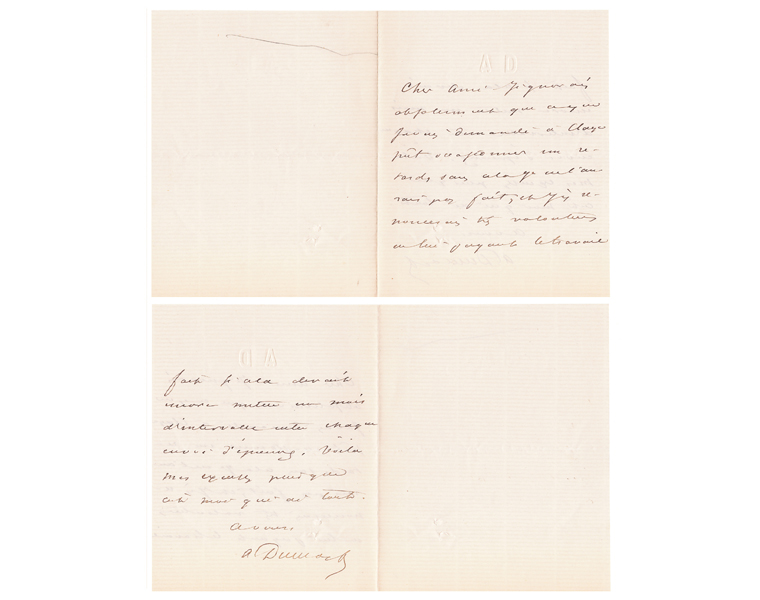 Cher Ami J'ignorais
absolument que ce que
j'avais demandé à Claye
pût occasionner un re-
tard, sans cela je ne l'au-
rais pas fait, et j'y re-
noncerais très volontiers
en lui payant le travail
fait si cela devait
encore mettre un mois
d'intervalle entre chaque
envoi d'épreuves. Voilà
mes excuses puisque
c'est moi qui ai tort.
A vous,
A Dumas f